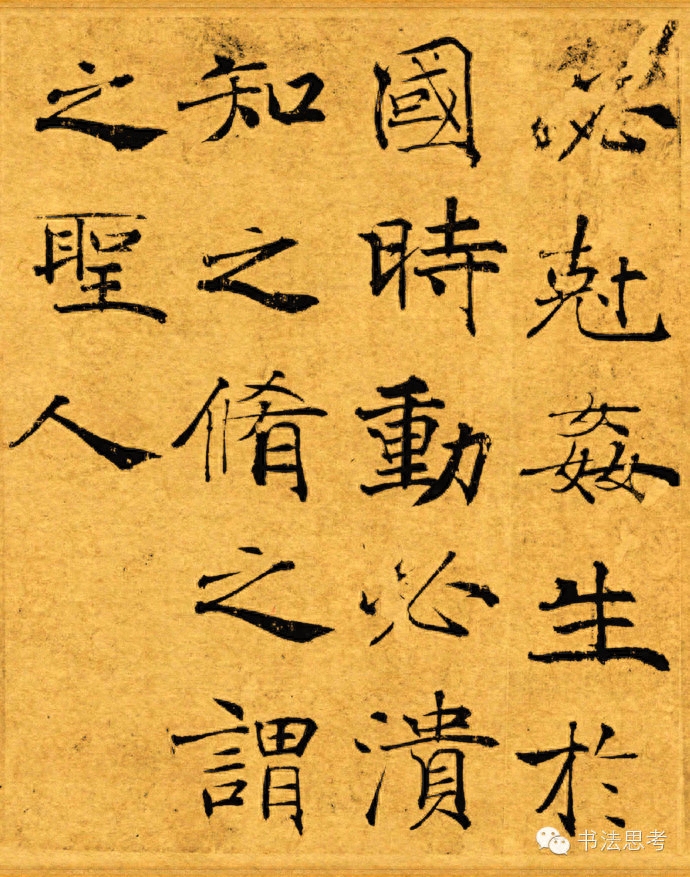 必尅姦生於
國時動必潰
知之脩之謂
之聖人
书法思考